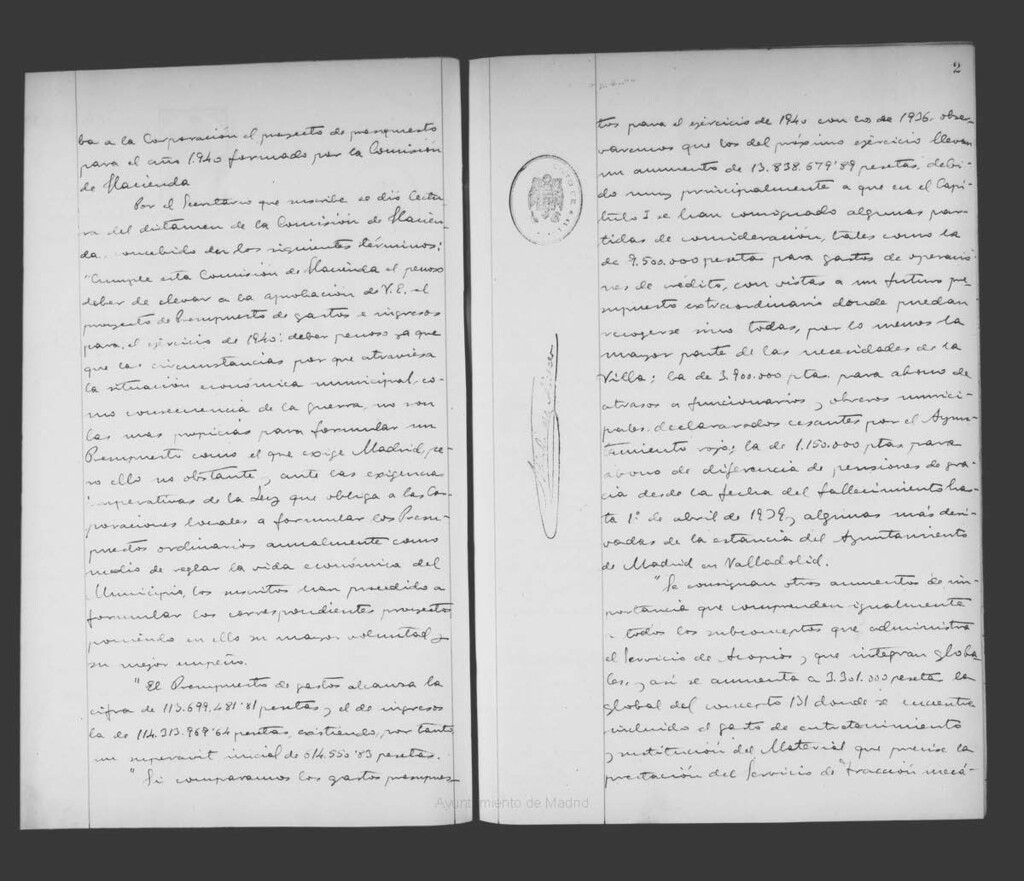 ba a la Corporación el proyecto de presupuesto
para el año 1940 formado por la Comisión
de Hacienda
Por el Secretario que suscribe se dió lectu-
ra del dictamen de la Comisión de Hacien-
da concebido en los siguientes términos:
"Cumple esta Comisión de Hacienda el penoso
deber de elevar a la aprobación de V.E. el
proyecto de Presupuesto de gastos e ingresos
para el ejercicio de 1940: deber penoso ya que
que las circunstancias por que atraviesa
la situación económica municipal, co-
mo consecuencia de la guerra, no son
las mas propicias para formular un
Presupuesto como el que exige Madrid, pe-
ro ello no obstante, y ante las exigencias
imperativas de la Ley que obliga a las Cor-
poraciones locales a formular los Presu-
puestos ordinarios anualmente como
medio de reglar la vida económica del
Municipio, los suscritos han procedido a
formular los correspondientes proyectos
poniendo en ello su mayor voluntad y
su mejor empeño.
"El Presupuesto de gastos alcanza la
cifra de 113.699.481'81 pesetas y el de ingresos
la de 114.313.969'64 pesetas, existiendo, por tanto
un superavit inicial de 614.550'83 pesetas.
"Si comparamos los gastos presupues-
2
tos para el ejercicio de 1940 con los de 1936, obser-
varemos que los del próximo ejercicio llevan
un aumento de 13.838.679'89 pesetas, debi-
do muy principalmente a que en el Capi-
tulo I se han consignado algunas par-
tidas de consideración, tales como la
de 9.500.000 pesetas para gastos de operacio-
nes de crédito, con vistas a un futuro pre-
supuesto extraordinario donde puedan
recogerse sino todas, por lo menos la
mayor parte de las necesidades de la
Villa; la de 3.900.000 ptas. para abono de
atrasos a funcionarios y obreros munici-
pales, declarados cesantes por el Ayun-
tamiento rojo; la de 1.150.000 ptas para
abono de diferencia de pensiones de gra-
cia desde la fecha del fallecimiento has-
ta 1º de abril de 1939, y algunas más deri-
vadas de la estancia del Ayuntamiento
de Madrid en Valladolid.
"Se consignan otros aumentos de im-
portancia que comprenden igualmente
a todos los subconceptos que administra
el Servicio de Acopios, y que integran globa-
les, y así se aumenta a 3.301.000 pesetas la
global del concepto 131 donde se encuentra
incluido el gasto de entretenimiento
y sustitución del Material que precise la
prestación del Servicio de "tracción mecá-
Ayuntamiento de Madrid